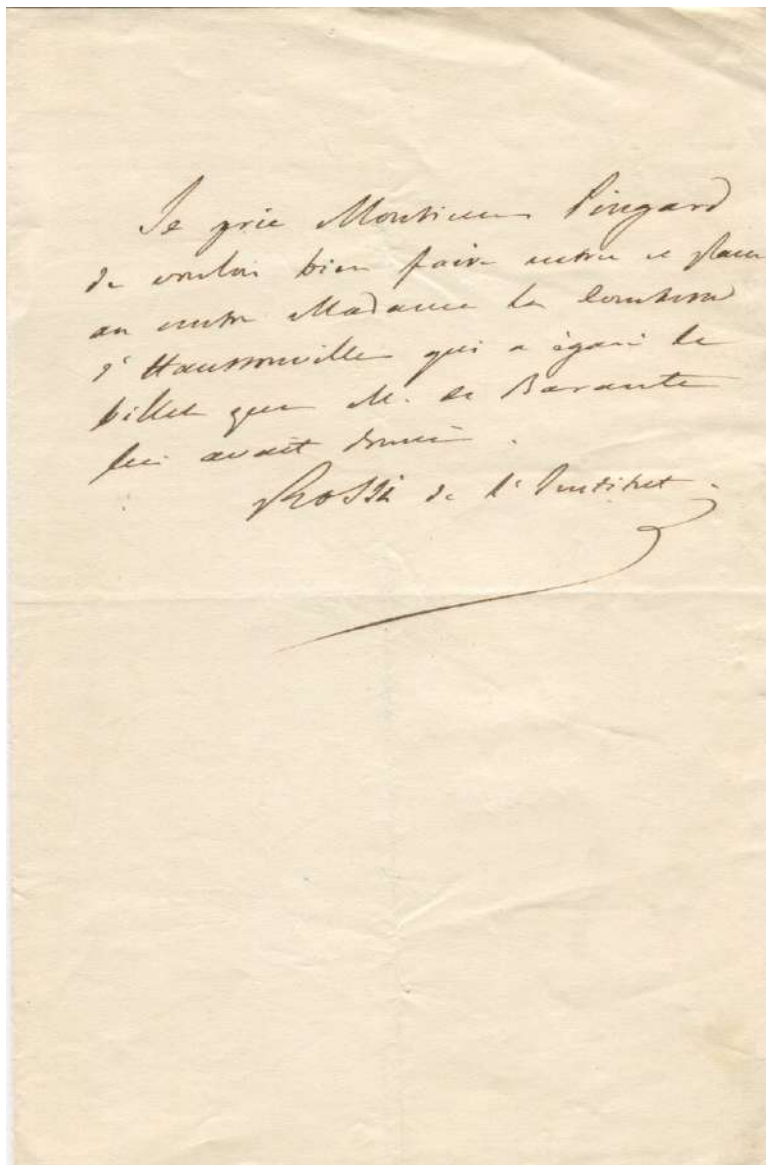 Je prie Monsieur Pingard
de vouloir bien faire entrer et placer
au centre Madame la Comtesse
d'Haussonville qui a égaré le
billet que M. de Barante
lui avait donné.
Rossi de l'Institut.